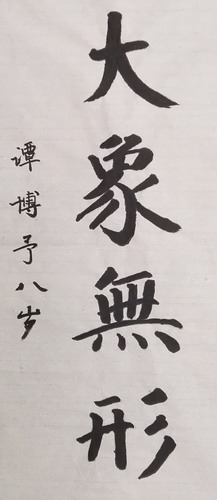 大象無形
谭博予八岁